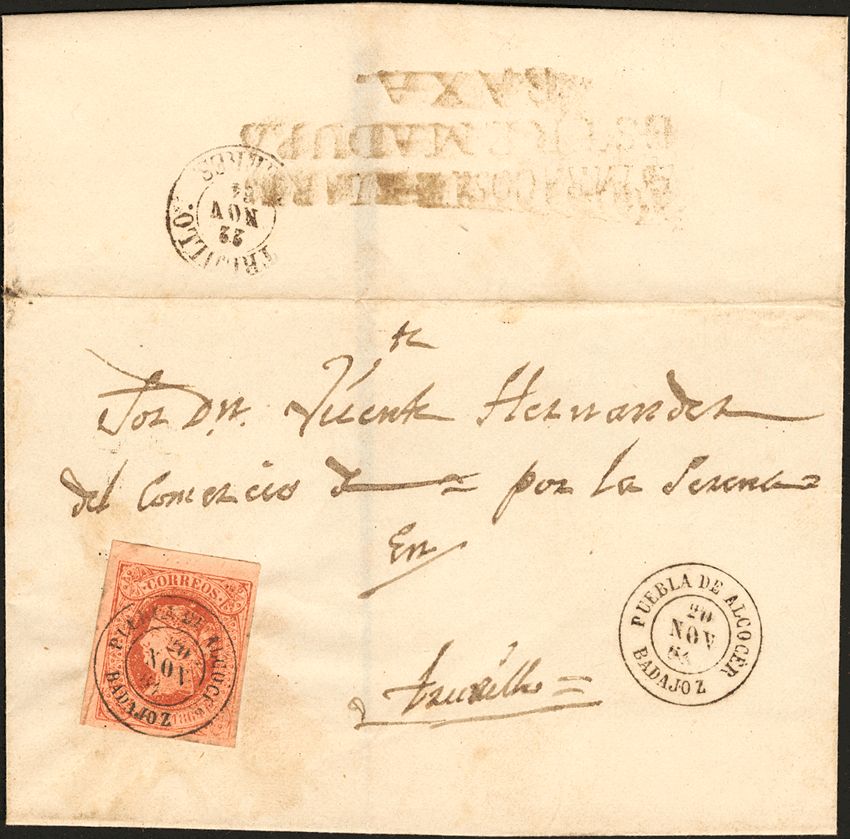 BAXA
ESTREMADURA
TRUJILLO.
22
NOV
64
Sor Dn. Vicente Hernandez
del Comercio de = por la Serena =
En
Truxillo =
CORREOS
PUEBLA DE ALCOCER
20
NOV
64
BADAJOZ
186
PUEBLA DE ALCOCER
20
NOV
64
BADAJOZ